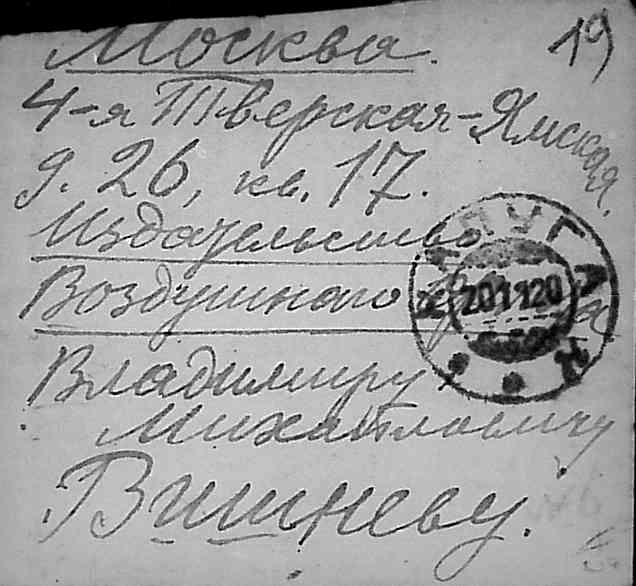 19
Москва.
4-я Тверская-Ямская
д. 26, кв. 17.
Издательство
Воздушнаго
Владимиру
Михайловичу
Вишневу.
КАЛУГА
201120